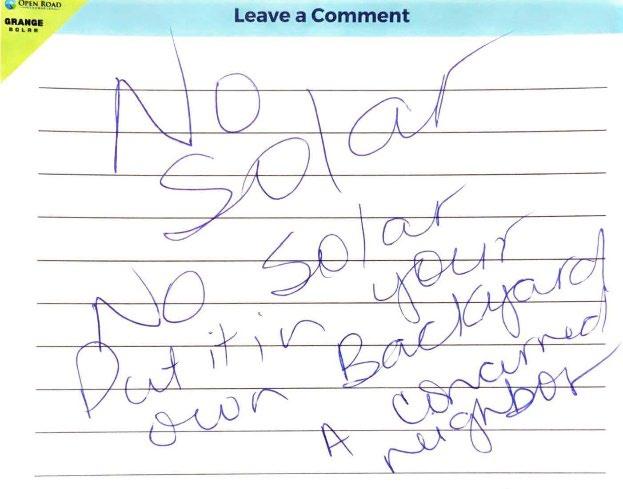 OPEN ROAD
GRANGE
SOLAR
Leave a Comment
No
Solar
No Solar
Put it in your
own Backyard
A concurned
neighbor